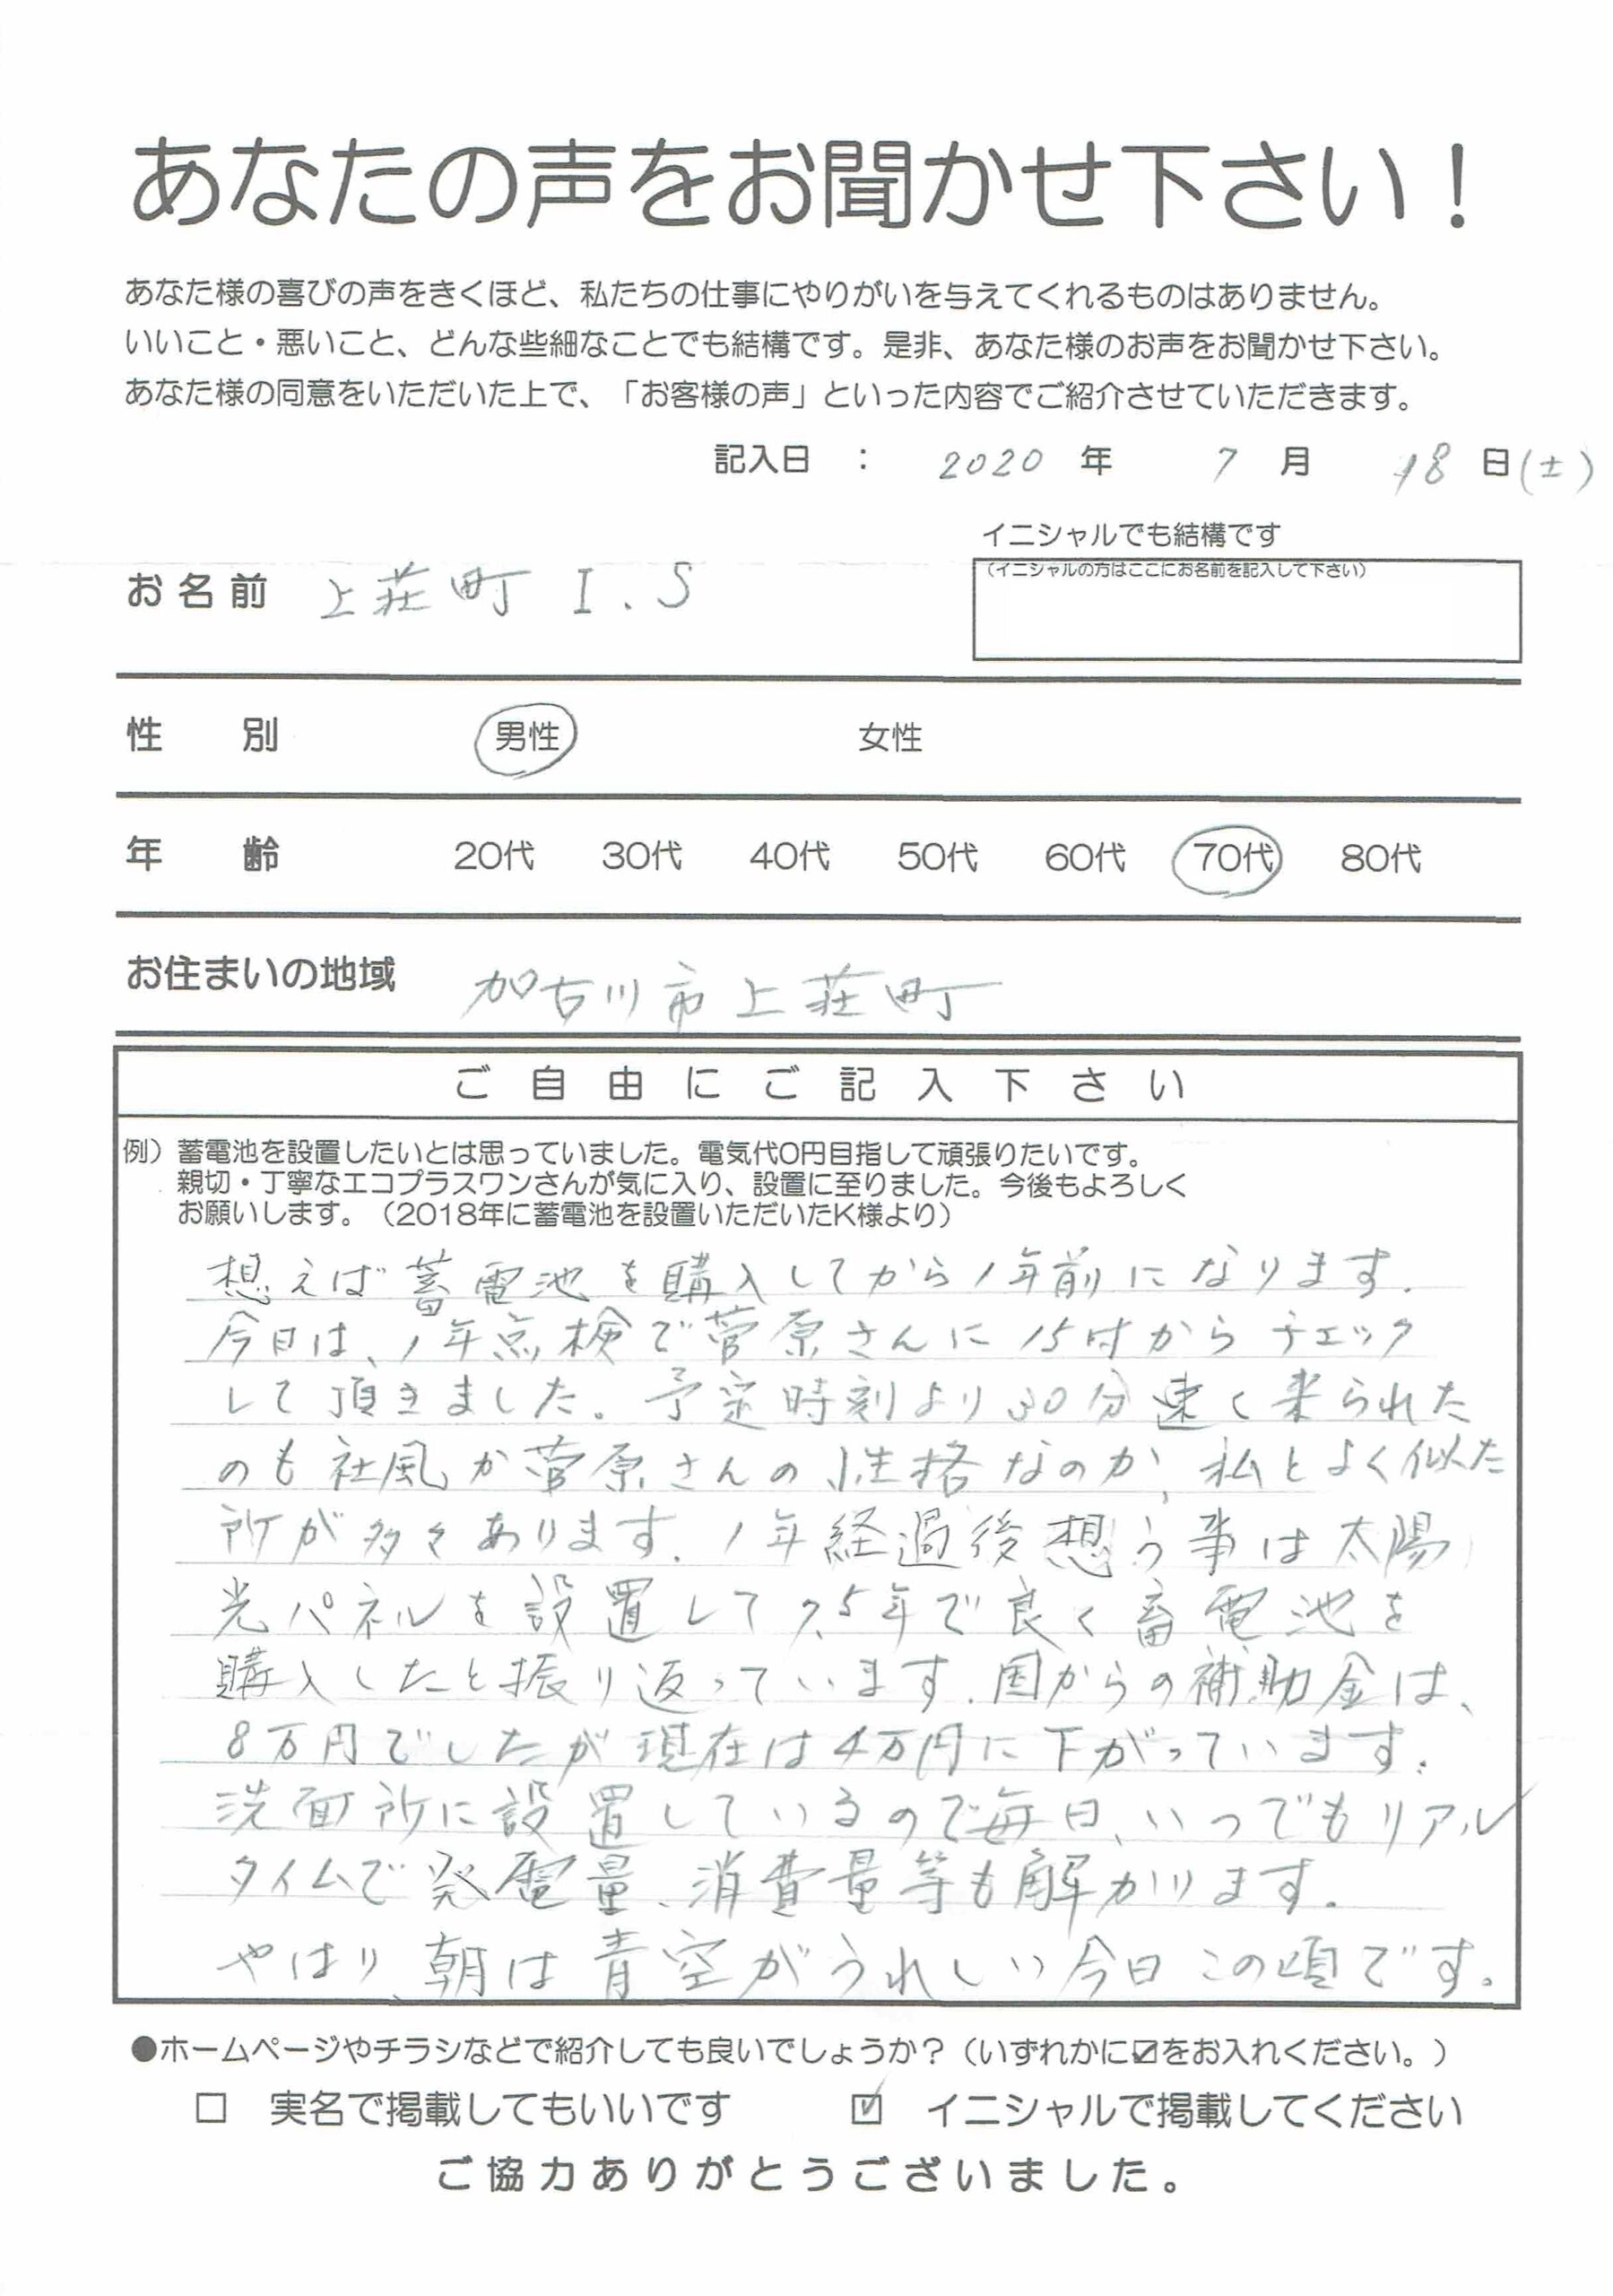 あなたの声をお聞かせ下さい！
あなた様の喜びの声をきくほど、私たちの仕事にやりがいを与えてくれるものはありません。
いいこと・悪いこと、どんな些細なことでも結構です。是非、あなた様のお声をお聞かせ下さい。
あなた様の同意をいただいた上で、「お客様の声」といった内容でご紹介させていただきます。
記入日 ： 2020 年 7 月 18 日(土)
イニシャルでも結構です
(イニシャルの方はここにお名前を記入して下さい)
お名前 上荘町 I.S
性別 男性 女性
年齢 20代 30代 40代 50代 60代 70代 80代
お住まいの地域 加古川市上荘町
ご自由にご記入下さい
例）蓄電池を設置したいとは思っていました。電気代0円目指して頑張りたいです。
親切・丁寧なエコプラスワンさんが気に入り、設置に至りました。今後もよろしく
お願いします。（2018年に蓄電池を設置いただいたK様より）
想えば蓄電池を購入してから1年前になります.
今日は、1年点検で菅原さんに15時からチェック
して頂きました。予定時刻より30分速く来られた
のも社風か菅原さんの性格なのか、私とよく似た
所が多々あります. 1年経過後想う事は太陽
光パネルを設置して7.5年で良く蓄電池を
購入したと振り返っています.国からの補助金は、
8万円でしたが現在は4万円に下がっています.
洗面所に設置しているので毎日、いつでもリアル
タイムで発電量、消費量等も解かります.
やはり、朝は青空がうれしい今日この頃です。
●ホームページやチラシなどで紹介しても良いでしょうか？（いずれかに☑をお入れください。）
□ 実名で掲載してもいいです ☑ イニシャルで掲載してください
ご協力ありがとうございました。